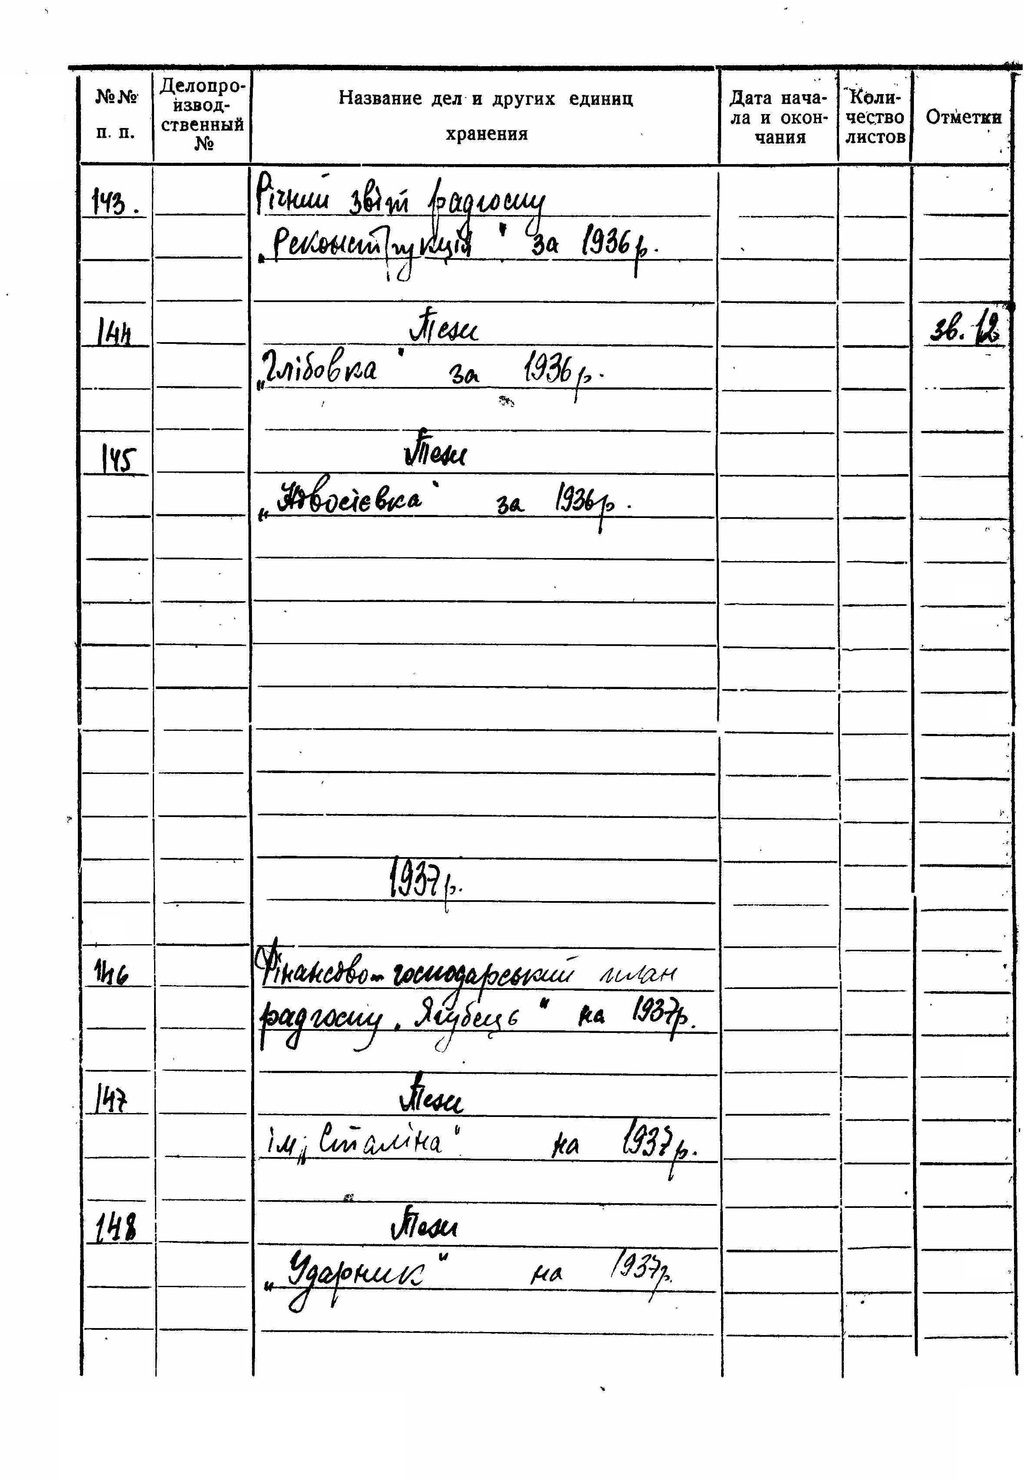 №№ п. п. Делопро-изводственный № Название дел и других единиц хранения Дата нача-ла и окон-чания Коли-чество листов Отметки
143. Річний звіт радгоспу
„Реконструкція" за 1936 р.
144 Тези зв. 12
„Глібовка" за 1936 р.
145 Тези
„Новосієвка" за 1936 р.
1937 р.
146 Фінансово-господарський план
радгоспу „Якубець" на 1937 р.
147 Тези
ім. „Сталіна" на 1937 р.
148 Тези
„Ударник" на 1937 р.